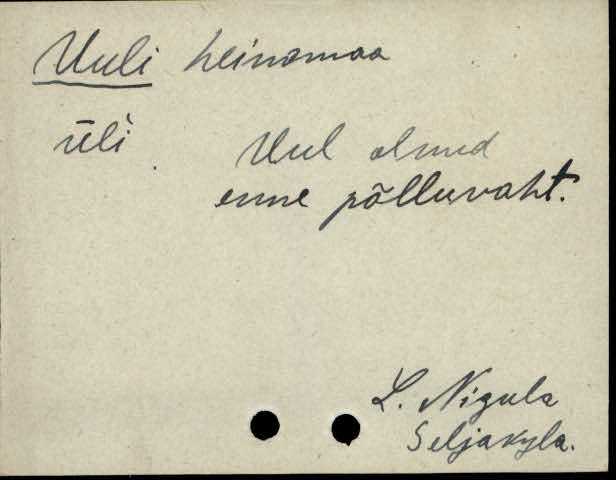 Uuli heinamaa
ūli
Uul olnud
enne põlluvaht.
L. Nigula
Seljaküla.